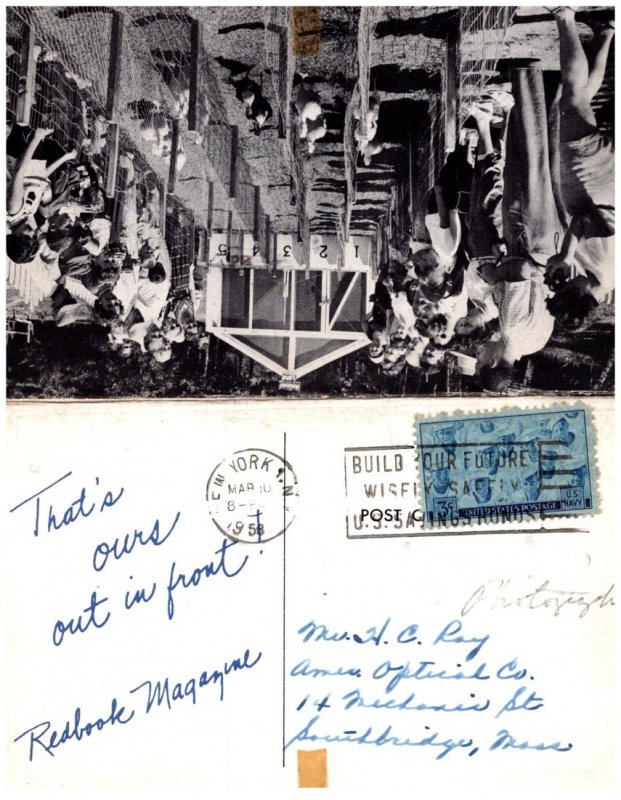 5 4 3 2 1
NEW YORK, N.Y.
MAR 10
1958
BUILD YOUR FUTURE
WISELY SAFELY
U.S. SAVINGS BONDS
3¢ UNITED STATES POSTAGE
U.S. NAVY
POST C
That's
ours
out in front!
Redbook Magazine
Photograph
Mr. H. C. Ray
Amer. Optical Co.
14 Mechanic St
Southbridge, Mass.